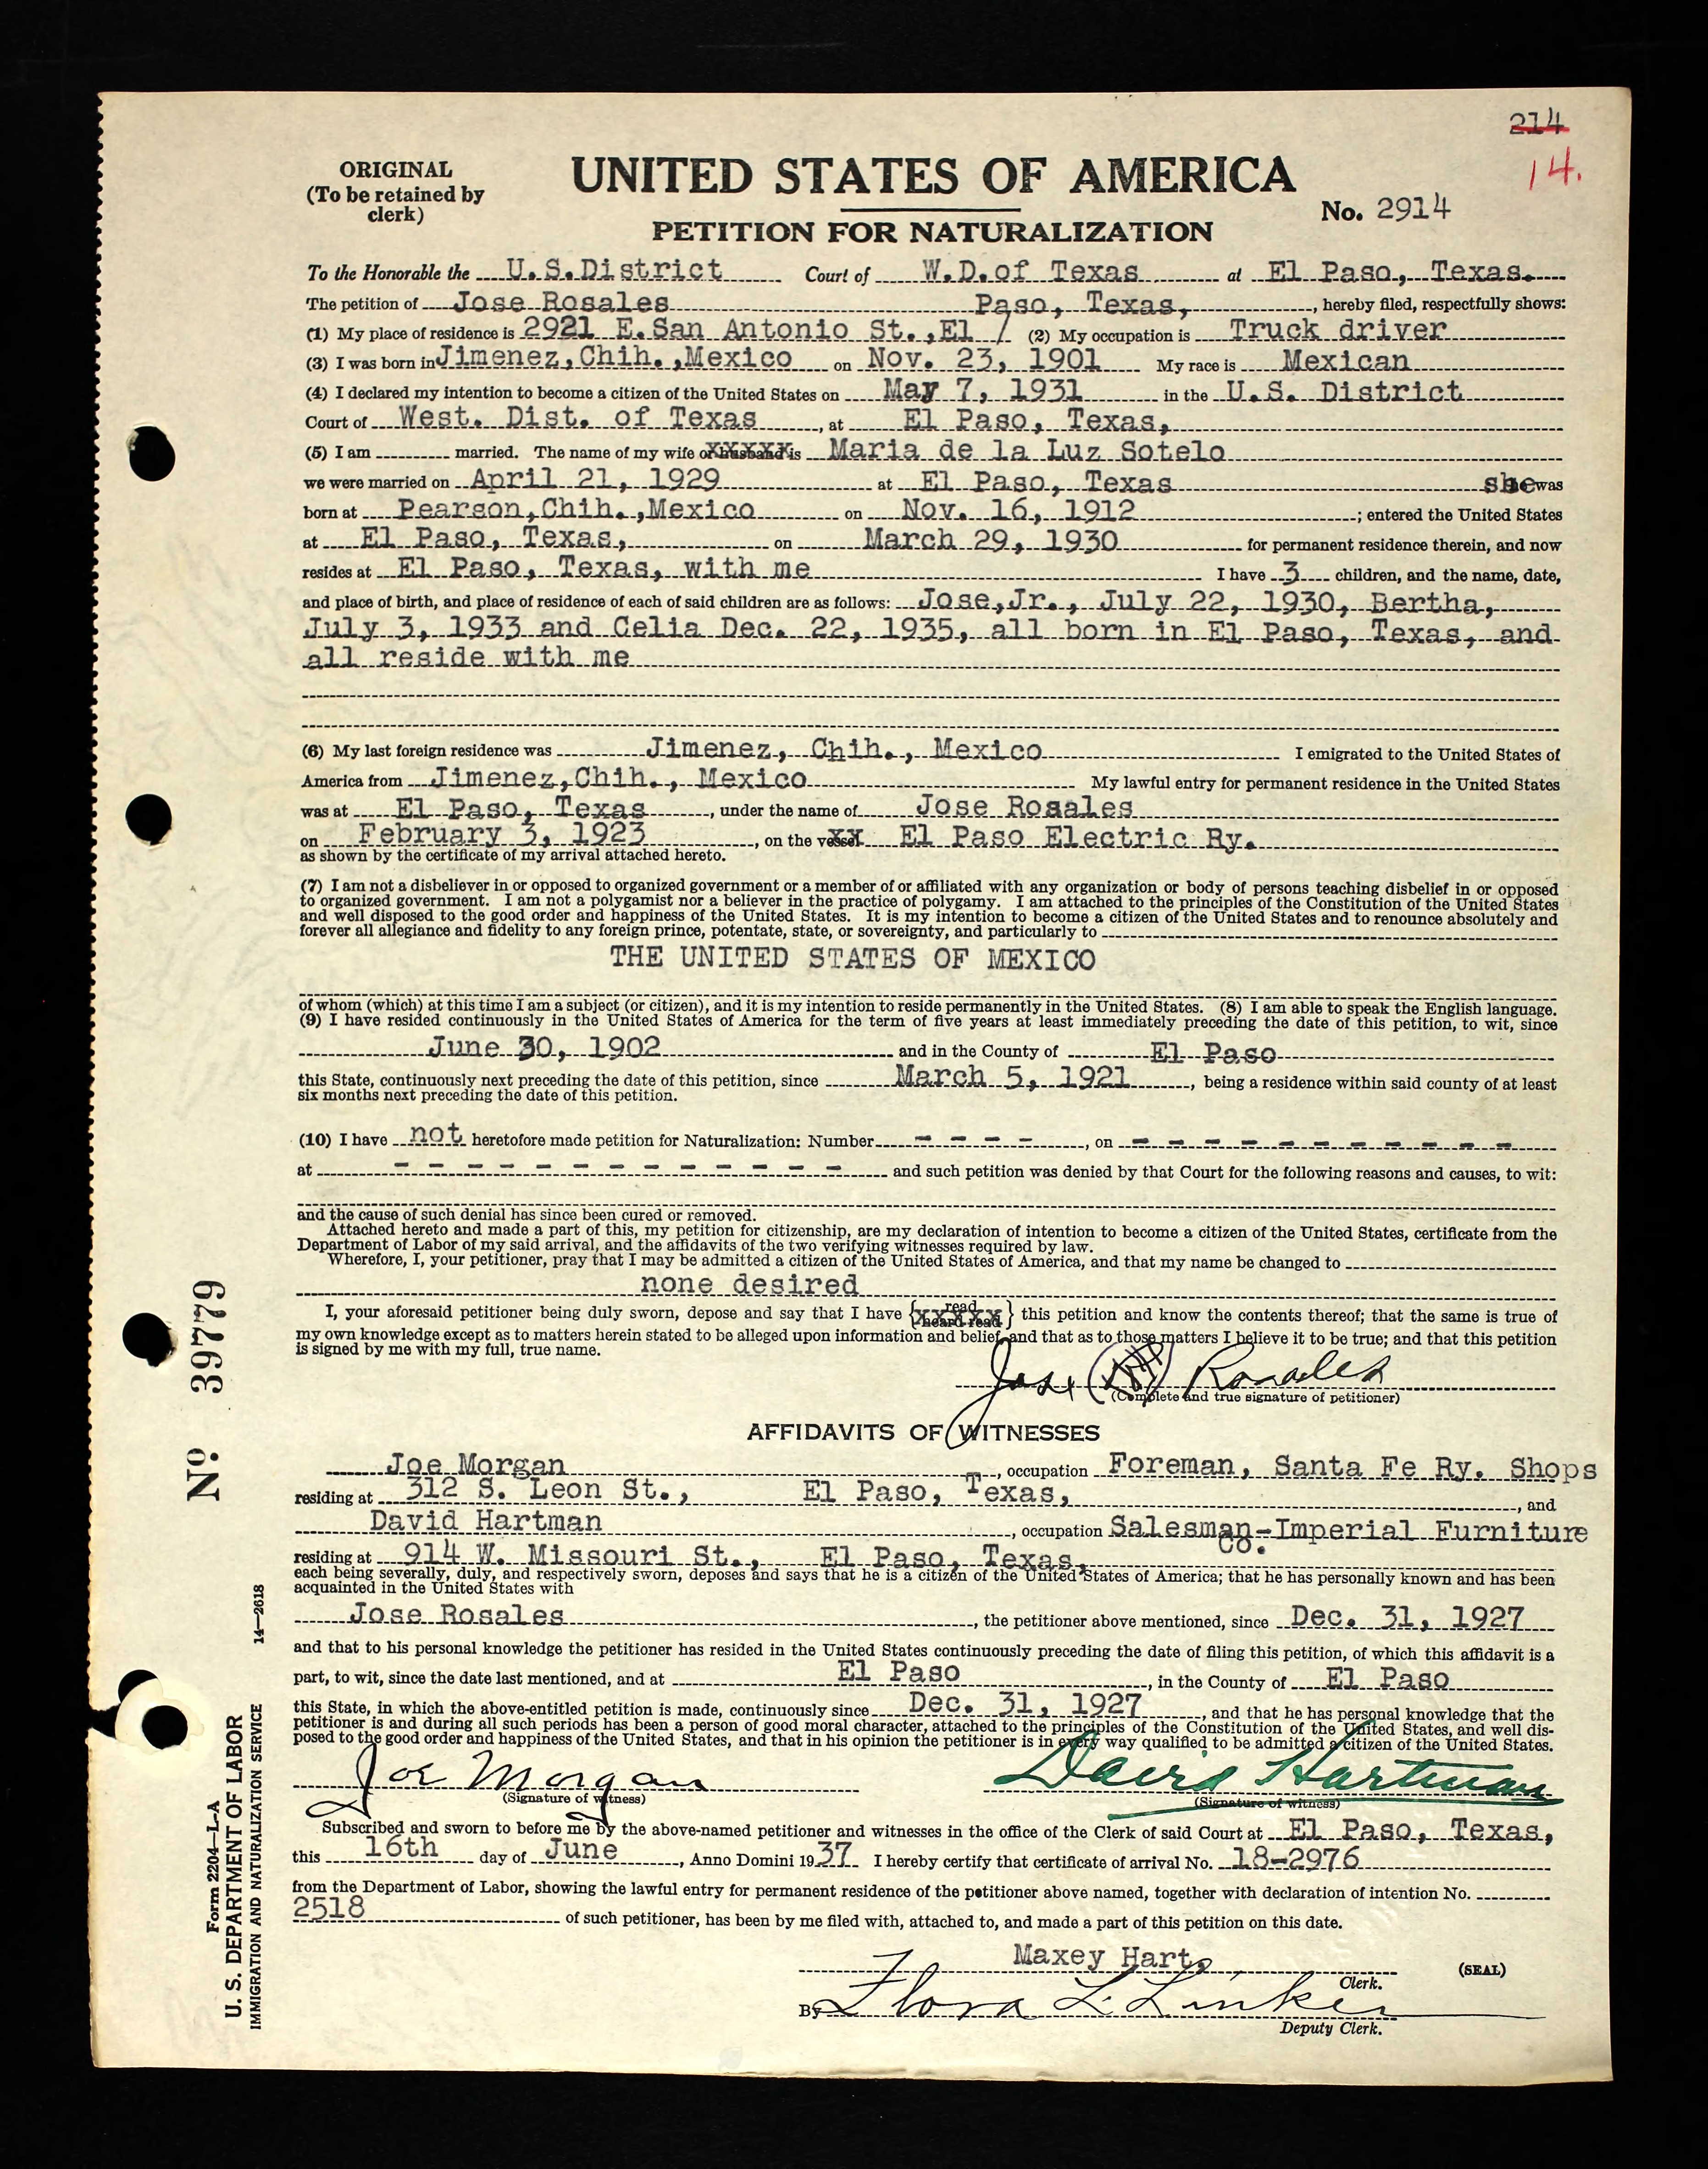 214
14.
ORIGINAL
(To be retained by
clerk)
UNITED STATES OF AMERICA
No. 2914
PETITION FOR NATURALIZATION
To the Honorable the U.S.District Court of W.D.of Texas at El Paso, Texas.
The petition of Jose Rosales Paso, Texas, , hereby filed, respectfully shows:
(1) My place of residence is 2921 E.San Antonio St.,El / (2) My occupation is Truck driver
(3) I was born in Jimenez,Chih.,Mexico on Nov. 23, 1901 My race is Mexican
(4) I declared my intention to become a citizen of the United States on May 7, 1931 in the U.S. District
Court of West. Dist. of Texas , at El Paso, Texas,
(5) I am married. The name of my wife or husband is Maria de la Luz Sotelo
we were married on April 21, 1929 at El Paso, Texas she was
born at Pearson,Chih.,Mexico on Nov. 16, 1912 ; entered the United States
at El Paso, Texas, on March 29, 1930 for permanent residence therein, and now
resides at El Paso, Texas, with me I have 3 children, and the name, date,
and place of birth, and place of residence of each of said children are as follows: Jose,Jr., July 22, 1930, Bertha,
July 3, 1933 and Celia Dec. 22, 1935, all born in El Paso, Texas, and
all reside with me
(6) My last foreign residence was Jimenez, Chih., Mexico I emigrated to the United States of
America from Jimenez,Chih., Mexico My lawful entry for permanent residence in the United States
was at El Paso, Texas , under the name of Jose Rosales
on February 3, 1923 , on the vessel El Paso Electric Ry.
as shown by the certificate of my arrival attached hereto.
(7) I am not a disbeliever in or opposed to organized government or a member of or affiliated with any organization or body of persons teaching disbelief in or opposed
to organized government. I am not a polygamist nor a believer in the practice of polygamy. I am attached to the principles of the Constitution of the United States
and well disposed to the good order and happiness of the United States. It is my intention to become a citizen of the United States and to renounce absolutely and
forever all allegiance and fidelity to any foreign prince, potentate, state, or sovereignty, and particularly to
THE UNITED STATES OF MEXICO
of whom (which) at this time I am a subject (or citizen), and it is my intention to reside permanently in the United States. (8) I am able to speak the English language.
(9) I have resided continuously in the United States of America for the term of five years at least immediately preceding the date of this petition, to wit, since
June 30, 1902 and in the County of El Paso
this State, continuously next preceding the date of this petition, since March 5, 1921 , being a residence within said county of at least
six months next preceding the date of this petition.
(10) I have not heretofore made petition for Naturalization: Number - - - - , on - - - - - - - - - - -
at - - - - - - - - - - - - - and such petition was denied by that Court for the following reasons and causes, to wit:
and the cause of such denial has since been cured or removed.
Attached hereto and made a part of this, my petition for citizenship, are my declaration of intention to become a citizen of the United States, certificate from the
Department of Labor of my said arrival, and the affidavits of the two verifying witnesses required by law.
Wherefore, I, your petitioner, pray that I may be admitted a citizen of the United States of America, and that my name be changed to
none desired
I, your aforesaid petitioner being duly sworn, depose and say that I have {read heard read} this petition and know the contents thereof; that the same is true of
my own knowledge except as to matters herein stated to be alleged upon information and belief, and that as to those matters I believe it to be true; and that this petition
is signed by me with my full, true name.
Jose Rosales
(Complete and true signature of petitioner)
AFFIDAVITS OF WITNESSES
Joe Morgan , occupation Foreman, Santa Fe Ry. Shops
residing at 312 S. Leon St., El Paso, Texas, , and
David Hartman , occupation Salesman-Imperial Furniture
Co.
residing at 914 W. Missouri St., El Paso, Texas,
each being severally, duly, and respectively sworn, deposes and says that he is a citizen of the United States of America; that he has personally known and has been
acquainted in the United States with
Jose Rosales , the petitioner above mentioned, since Dec. 31, 1927
and that to his personal knowledge the petitioner has resided in the United States continuously preceding the date of filing this petition, of which this affidavit is a
part, to wit, since the date last mentioned, and at El Paso , in the County of El Paso
this State, in which the above-entitled petition is made, continuously since Dec. 31, 1927 , and that he has personal knowledge that the
petitioner is and during all such periods has been a person of good moral character, attached to the principles of the Constitution of the United States, and well dis-
posed to the good order and happiness of the United States, and that in his opinion the petitioner is in every way qualified to be admitted a citizen of the United States.
Joe Morgan David Hartman
(Signature of witness) (Signature of witness)
Subscribed and sworn to before me by the above-named petitioner and witnesses in the office of the Clerk of said Court at El Paso, Texas,
this 16th day of June , Anno Domini 1937 I hereby certify that certificate of arrival No. 18-2976
from the Department of Labor, showing the lawful entry for permanent residence of the petitioner above named, together with declaration of intention No.
2518 of such petitioner, has been by me filed with, attached to, and made a part of this petition on this date.
Maxey Hart,
Clerk. (SEAL)
By Flora L. Linker
Deputy Clerk.
No. 39779
14—2618
Form 2204—L-A
U. S. DEPARTMENT OF LABOR
IMMIGRATION AND NATURALIZATION SERVICE